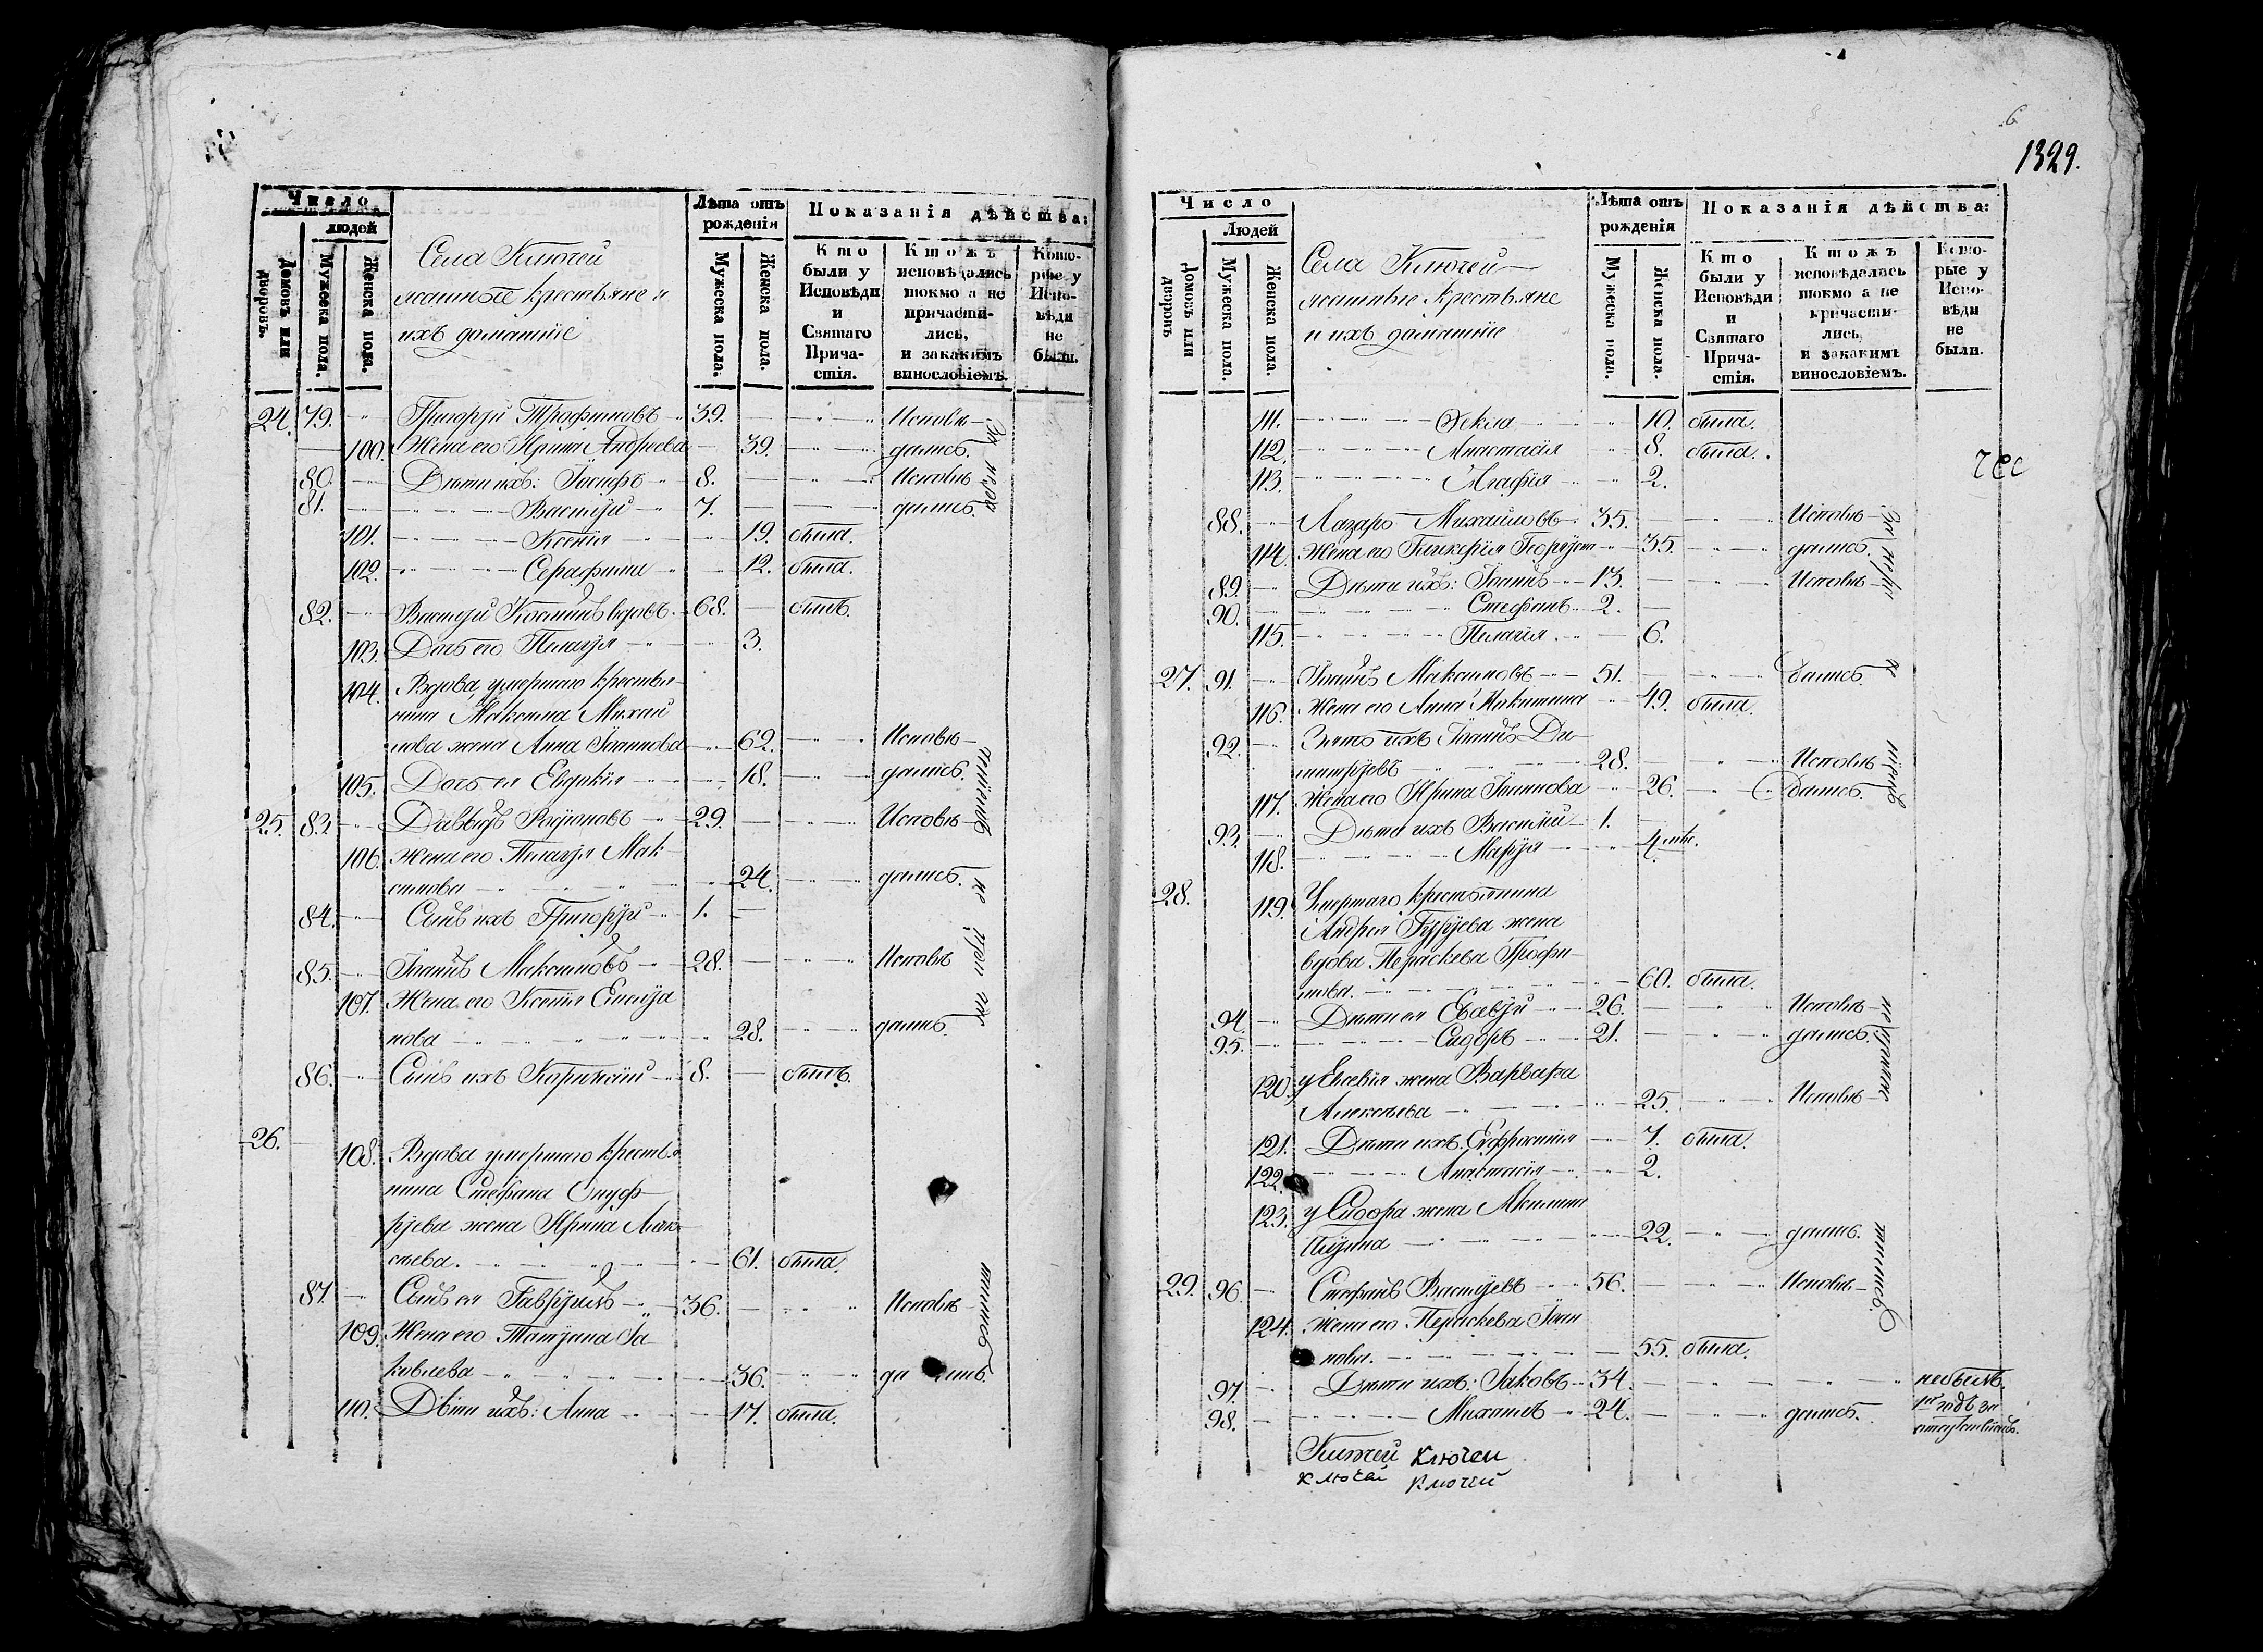 Число
людей
Домовъ или дворовъ.
Мужеска пола.
Женска пола.
Села Ключей
ясашные крестьяне и
ихъ домашніе
Лѣта отъ рожденія
Мужеска пола.
Женска пола.
Показанія дѣйства:
Кто были у Исповѣди и Святаго Причастія.
Ктожъ исповѣдались токмо а не причастились, и закакимъ винословіемъ.
Которые у Исповѣди не были.
24. 79. Григорій Трофимовъ 39. Исповѣ-
100. Жена его Ирина Андреева 39. дались.
80. Дѣти ихъ: Іосифъ 8. Исповѣ-
81. Василій 7. дались.
101. Ксенія 19. была.
102. Серафима 12. была.
82. Василій Косминъ вдовъ. 68. былъ.
103. Дочь его Пелагія 3.
104. Вдова, умершаго крестья-
нина Максима Михай
лова жена Анна Іоаннова 62. Исповѣ-
105. Дочь ея Евдокія 18. дались.
25. 83. Давыдъ Родіоновъ 29. Исповѣ-
106. Жена его Пелагія Мак-
симова 24. дались.
84. Сынъ ихъ Григорій 1.
85. Іоаннъ Максимовъ 28. Исповѣ
107. Жена его Ксенія Емелія
нова 28. дались.
86. Сынъ ихъ Корнилій 8. былъ.
26. 108. Вдова умершаго крестья
нина Стефана Онуф-
ріева жена Ирина Алек-
сѣева. 61. была.
87. Сынъ ея Гавріилъ 36. Исповѣ-
109. Жена его Татіана Іа
ковлева 36. дались.
110. Дѣти ихъ: Анна 17. была.
6
1329.
Число
Людей
Домовъ или дворовъ
Мужеска пола.
Женска пола.
Села Ключей
ясашные крестьяне
и ихъ домашніе
Лѣта отъ рожденія
Мужеска пола.
Женска пола.
Показанія дѣйства:
Кто были у Исповѣди и Святаго Причастія.
Ктожъ исповѣдались токмо а не причастились, и закакимъ винословіемъ.
Которые у Исповѣди не были.
111. Ѳекла 10. была.
112. Анастасія 8. была.
113. Агафія 2.
88. Лазарь Михайловъ 35. Исповѣ-
114. Жена его Гликерія Георгіева 35. дались.
89. Дѣти ихъ: Іоаннъ 13. Исповѣ-
90. Стефанъ 2.
115. Пелагія 6.
27. 91. Іоаннъ Максимовъ 51. дались.
116. Жена его Анна Никитина 49. была.
92. Зять ихъ Іоаннъ Ди-
митріевъ 28. Исповѣ
117. Жена его Ирина Іоаннова 26. дались.
93. Дѣти ихъ Василій 1.
118. Марія 4 мѣс.
28. 119. Умершаго крестьянина
Андрея Гуріева жена
вдова Параскева Трофи-
мова. 60. была.
94. Дѣти ея Евсевій 26. Исповѣ-
95. Сидоръ 21. дались.
120. у Евсевія жена Варвара
Алексѣева 25. Исповѣ-
121. Дѣти ихъ: Евфросинія 7. была.
122. Анастасія 2.
123. у Сидора жена Акилина
22. дались.
29. 96. Стефанъ Василіевъ 56. Исповѣ-
124. Жена его Параскева Іоан
нова. 55. была.
97. Дѣти ихъ: Іаковъ 34. небылъ.
98. Михаилъ 24. дались. 1й годъ за
отсутствіемъ.
Ключей Ключей
Ключей Ключей